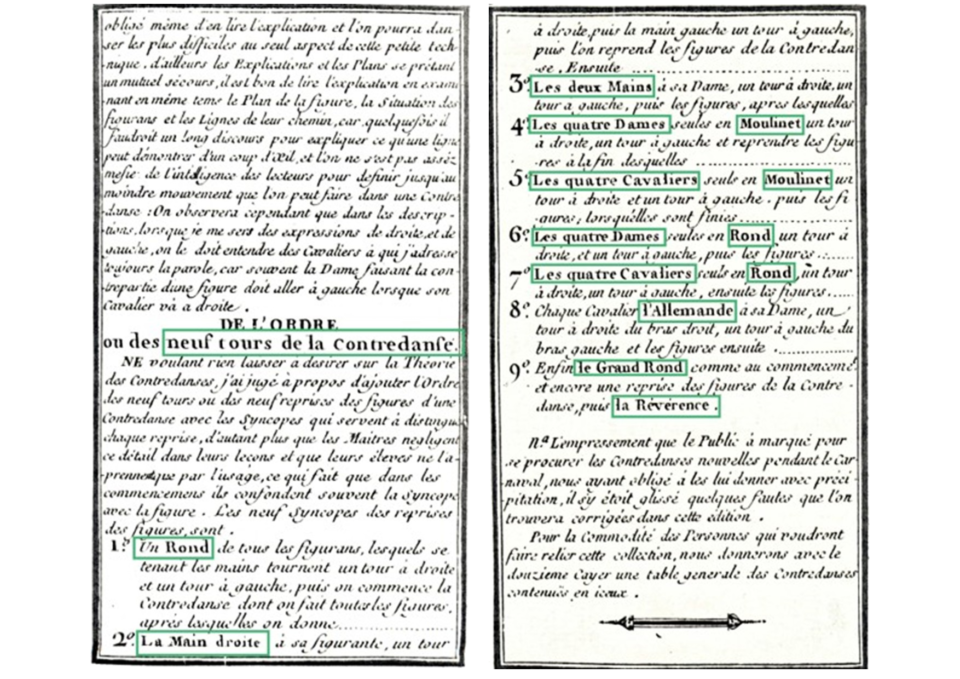 obligé même d'en lire l'explication et l'on pourra dan-
ser les plus difficiles au seul aspect de cette petite tech-
nique. d'ailleurs les Explications et les Plans se prêtant
un mutuel sécours, il est bon de lire l'explication en exami-
nant en même tems le Plan de la figure, la Situation des
figurans et les Lignes de leur chemin, car quelquefois il
faudroit un long discours pour expliquer ce qu'une ligne
peut démontrer d'un coup d'œil, et l'on ne s'est pas assèz
mefié de l'intelligence des lecteurs pour definir jusqu'au
moindre mouvement que l'on peut faire dans une Contre-
danse : On observera cependant que dans les descrip-
tions, lorsque je me sers des expressions de droite, et de
gauche, on le doit entendre des Cavaliers à qui j'adresse
toujours la parole, car souvent la Dame faisant la con-
trepartie d'une figure doit aller à gauche lorsque son
Cavalier và a droite.
DE L'ORDRE
ou des neuf tours de la Contredanse.
NE voulant rien laisser a desirer sur la Théorie
des Contredanses, j'ai jugé à propos d'ajouter l'Ordre
des neuf tours ou des neuf reprises des figures d'une
Contredanse avec les Syncopes qui servent à distingue
chaque reprise, d'autant plus que les Maitres negligent
ce détail dans leurs lecons et que leurs éleves ne l'a-
prennent que par l'usage, ce qui fait que dans les
commencemens ils confondent souvent la Syncope
avec la figure. Les neuf Syncopes des reprises
des figures, sont.
1.° Un Rond de tous les figurans, lesquels se
tenant les mains tournent un tour à droite
et un tour à gauche, puis on commence la
Contredanse dont on fait toutes les figures,
après lesquelles on donne....................
2°. La Main droite à sa figurante, un tour
à droite, puis la main gauche un tour à gauche,
puis l'on reprend les figures de la Contredan
se. Ensuite ..............................
3°. Les deux Mains à sa Dame, un tour à droite, un
tour a gauche, puis les figures, apres lesquelles
4°. Les quatre Dames seules en Moulinet un tour
à droite, un tour à gauche et reprendre les figu
res à la fin desquelles ......................
5°. Les quatre Cavaliers seuls en Moulinet un
tour à droite et un tour à gauche. puis les fi
gures; lorsqu'elles sont finies....................
6°. Les quatre Dames seules en Rond un tour à
droite, et un tour à gauche, puis les figures.......
7° Les quatre Cavaliers seuls en Rond, un tour
à droite, un tour à gauche, ensuite les figures.....
8°. Chaque Cavalier l'Allemande à sa Dame, un
tour à droite du bras droit, un tour à gauche du
bras gauche et les figures ensuite ..............
9°. Enfin le Grand Rond comme au commencemt.
et encore une reprise des figures de la Contre-
danse, puis la Révérence.
Na. L'empressement que le Public à marqué pour
se procurer les Contredanses nouvelles pendant le Car
naval, nous ayant obligé à les lui donner avec préci
pitation, il s'y étoit glissé quelques fautes que l'on
trouvera corrigées dans cette édition.
Pour la Commodité des Personnes qui voudront
faire relier cette collection, nous donnerons avec le
douzieme Cayer une table generale des Contredanses
contenuës en iceux.